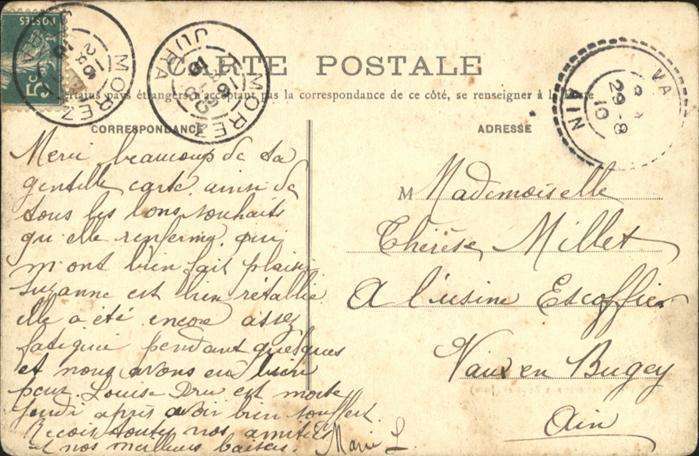 POSTES
5c
MOREZ
JURA
MOREZ
JURA
28-8
10
VA
29-8
10
AIN
CARTE POSTALE
Certains pays étrangers n'acceptant pas la correspondance de ce côté, se renseigner à la
CORRESPONDANCE
ADRESSE
Merci beaucoup de ta
gentille carte ainsi de
tous les bons souhaits
qu'elle renferme qui
m'ont bien fait plaisir
Suzanne est bien rétablie
elle a été encore assez
fatiguée pendant quelques
et nous avons eu bien
peur. Louise Dru est morte
jeudi après avoir bien souffert.
Reçois toutes nos amitiés
et nos meilleurs baisers. Marie L
M Mademoiselle
Thérèse Millet
A l'usine Escoffier
Vaux en Bugey
Ain